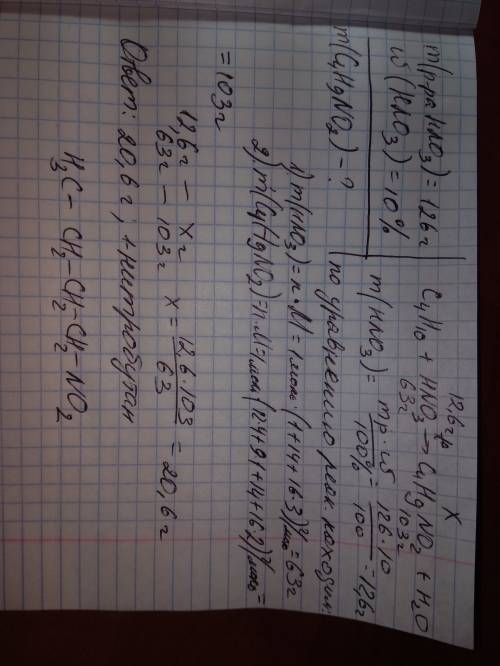 m(р-ра HNO3) = 126 г
ω(HNO3) = 10%
m(C4H9NO2) - ?
12,6 гр X
C4H10 + HNO3 → C4H9NO2 + H2O
63г 103г
m(HNO3) = mр·ω / 100% = 126·10 / 100 = 12,6г
по уравнению реак. находим:
1) m(HNO3) = n·M = 1моль·(1+14+16·3)г/моль = 63г
2) m(C4H9NO2) = n·M = 1моль(12·4+9·1+14+16·2)г/моль =
= 103г
12,6г – xг
63г – 103г x = 12,6·103 / 63 = 20,6г
Ответ: 20,6г; + нитробутан
H3C – CH2 – CH2 – CH2 – NO2